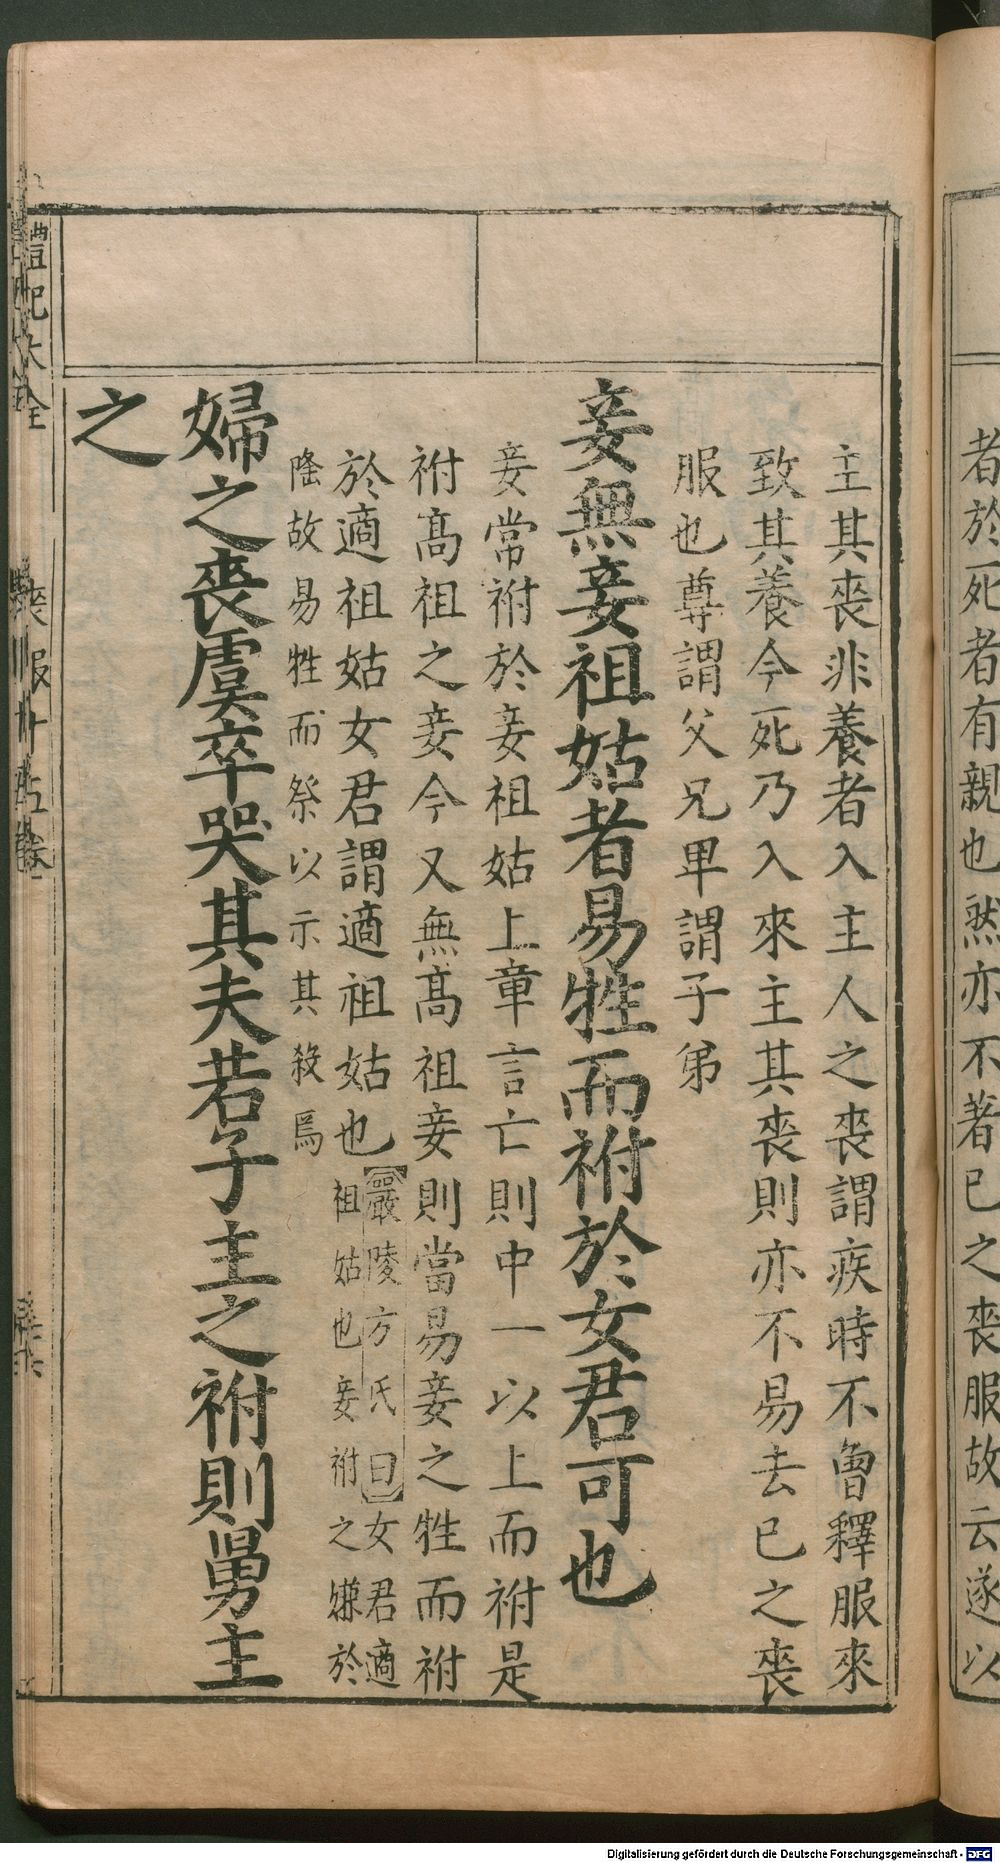 者於死者有親也然亦不著已之喪服故云遂以
主其喪非養者入主人之喪謂疾時不曾釋服來
致其養今死乃入來主其喪則亦不易去已之喪
服也尊謂父兄卑謂子弟
妾無妾祖姑者易牲而祔於女君可也
妾常祔於妾祖姑上章言亡則中一以上而祔是
祔髙祖之妾今又無髙祖妾則當易妾之牲而祔
於適祖姑女君謂適祖姑也【嚴陵方氏曰】女君適
祖姑也妾祔之嫌於
隆故易牲而祭以示其殺焉
婦之喪虞卒哭其夫若子主之祔則舅主
之
禮記大全
喪服十五卷
Digitalisierung gefördert durch die Deutsche Forschungsgemeinschaft - DFG